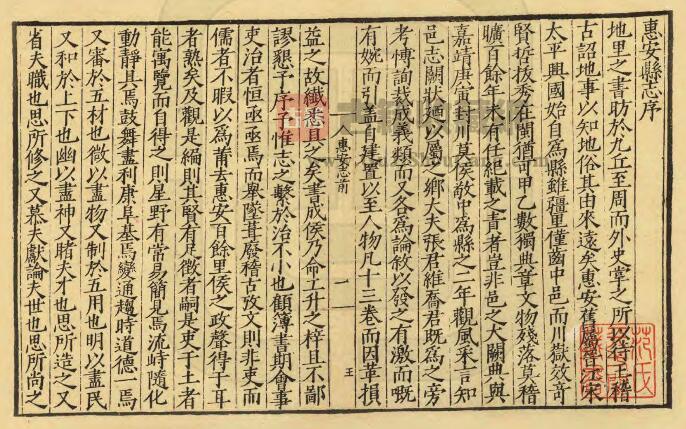 惠安縣志序
地里之書昉於九丘至周而外史宰之所以
古詔地事以知地俗其由來遠矣惠安舊屬晉江宋
太平興國始自為縣雖疆里僅齒中邑而川嶽效奇
賢哲拔秀在閩猶可甲乙數獨典章文物殘落莫稽
曠百餘年未有任紀載之責者豈非邑之大闕典與
嘉靖庚寅封川莫侯敬中為縣之二年觀風采言知
邑志闕狀廼以屬之鄉大夫張君維喬君既為之旁
考慱詢裁成義類而又各為論敘以發之有激而嘅
有婉而引蓋自建置以至人物凡十三卷而因革損
惠安志前
一
王
益之故纖悉具之矣書成侯乃命工升之梓且不鄙
謬懇予序予惟志之繫於治不小也顧簿書期會事
吏治者恒亟亟焉而舉墜葺廢稽古攷文則非吏而
儒者不暇以為莆去惠安百餘里侯之政聲得于耳
者熟矣及觀是編則其賢有足徵者嗣是吏于土者
能寓覽而自得之則星野有常易簡見焉流峙隨化
動靜具焉鼓舞盡利康阜基焉變通趨時道德一焉
又審於五材也微以盡物又制於五用也明以盡民
又和於上下也幽以盡神又賭夫才也思所造之又
省夫職也思所修之又慕夫獻論夫世也思所尚之